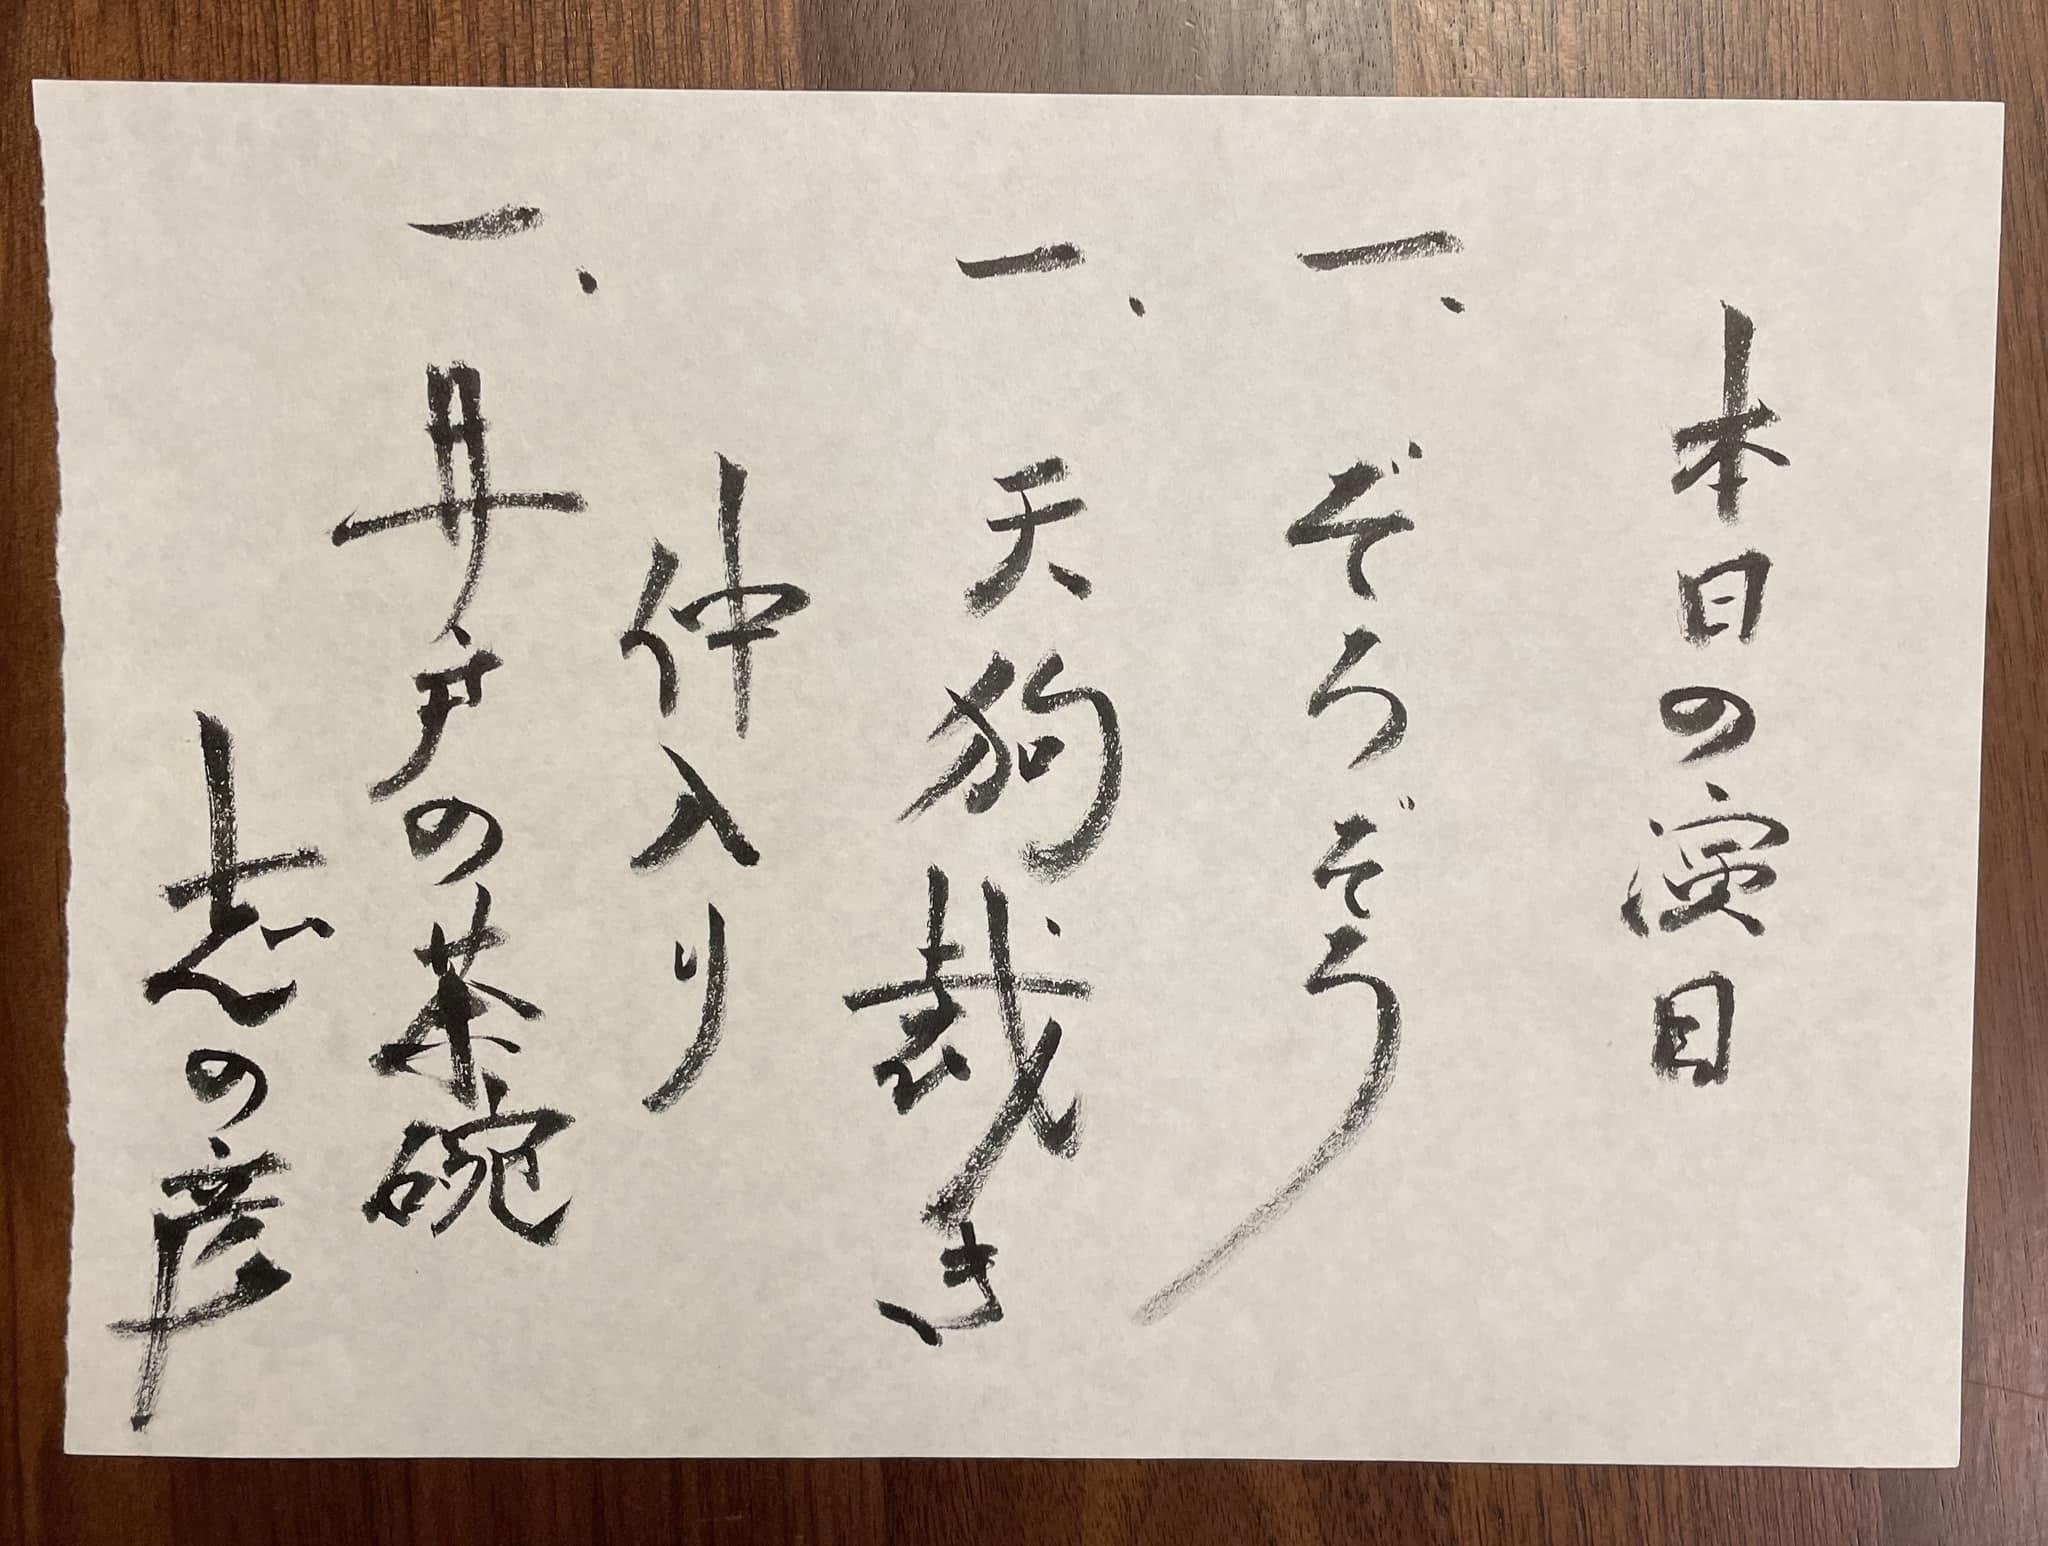 本日の演目
一、ぞろぞろ
一、天狗裁き
仲入り
一、井戸の茶碗
志の彦